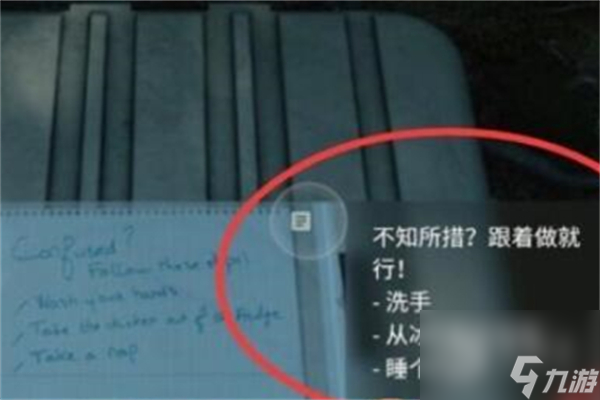 Confused?
Follow these steps!
Wash your hands
Take the chicken out of the fridge
Take a nap
不知所措？跟着做就
行！
- 洗手
- 从冰
- 睡个
九游